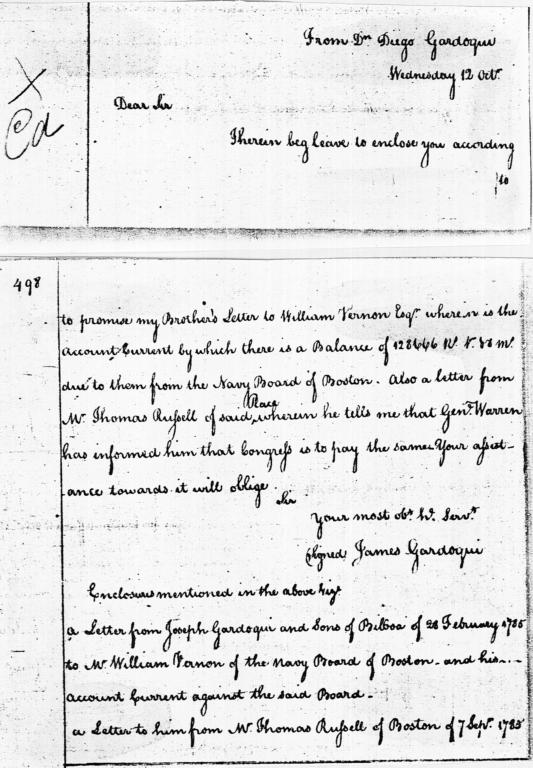 From Dn Diego Gardoqui
Wednesday 12 Octr
X
Cd
Dear Sir
I herein beg leave to enclose you according
to
498
to promise my Brother's Letter to William Vernon Esqr wherein is the
account Current by which there is a Balance of
due to them from the Navy Board of Boston. Also a letter from
Place
Mr Thomas Russell of said, wherein he tells me that Genl Warren
has informed him that Congress is to pay the same. Your assist-
-ance towards it will oblige
Sir
your most obt hl Servt
(signed) James Gardoqui
Enclosures mentioned in the above
a Letter from Joseph Gardoqui and Sons of Bilboa of 28 February 1785
to Mr William Vernon of the Navy Board of Boston - and his - - -
account Current against the said Board -
a Letter to him from Mr Thomas Russell of Boston of 7 Sepr 1785